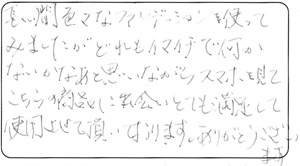 長い間色々なファンデーションを使って
みましたがどれもイマイチで何か
ないかなあと思いながらスマホを見て
こちらの商品に出会いとても満足して
使用させて頂いております。ありがとうござい
ます